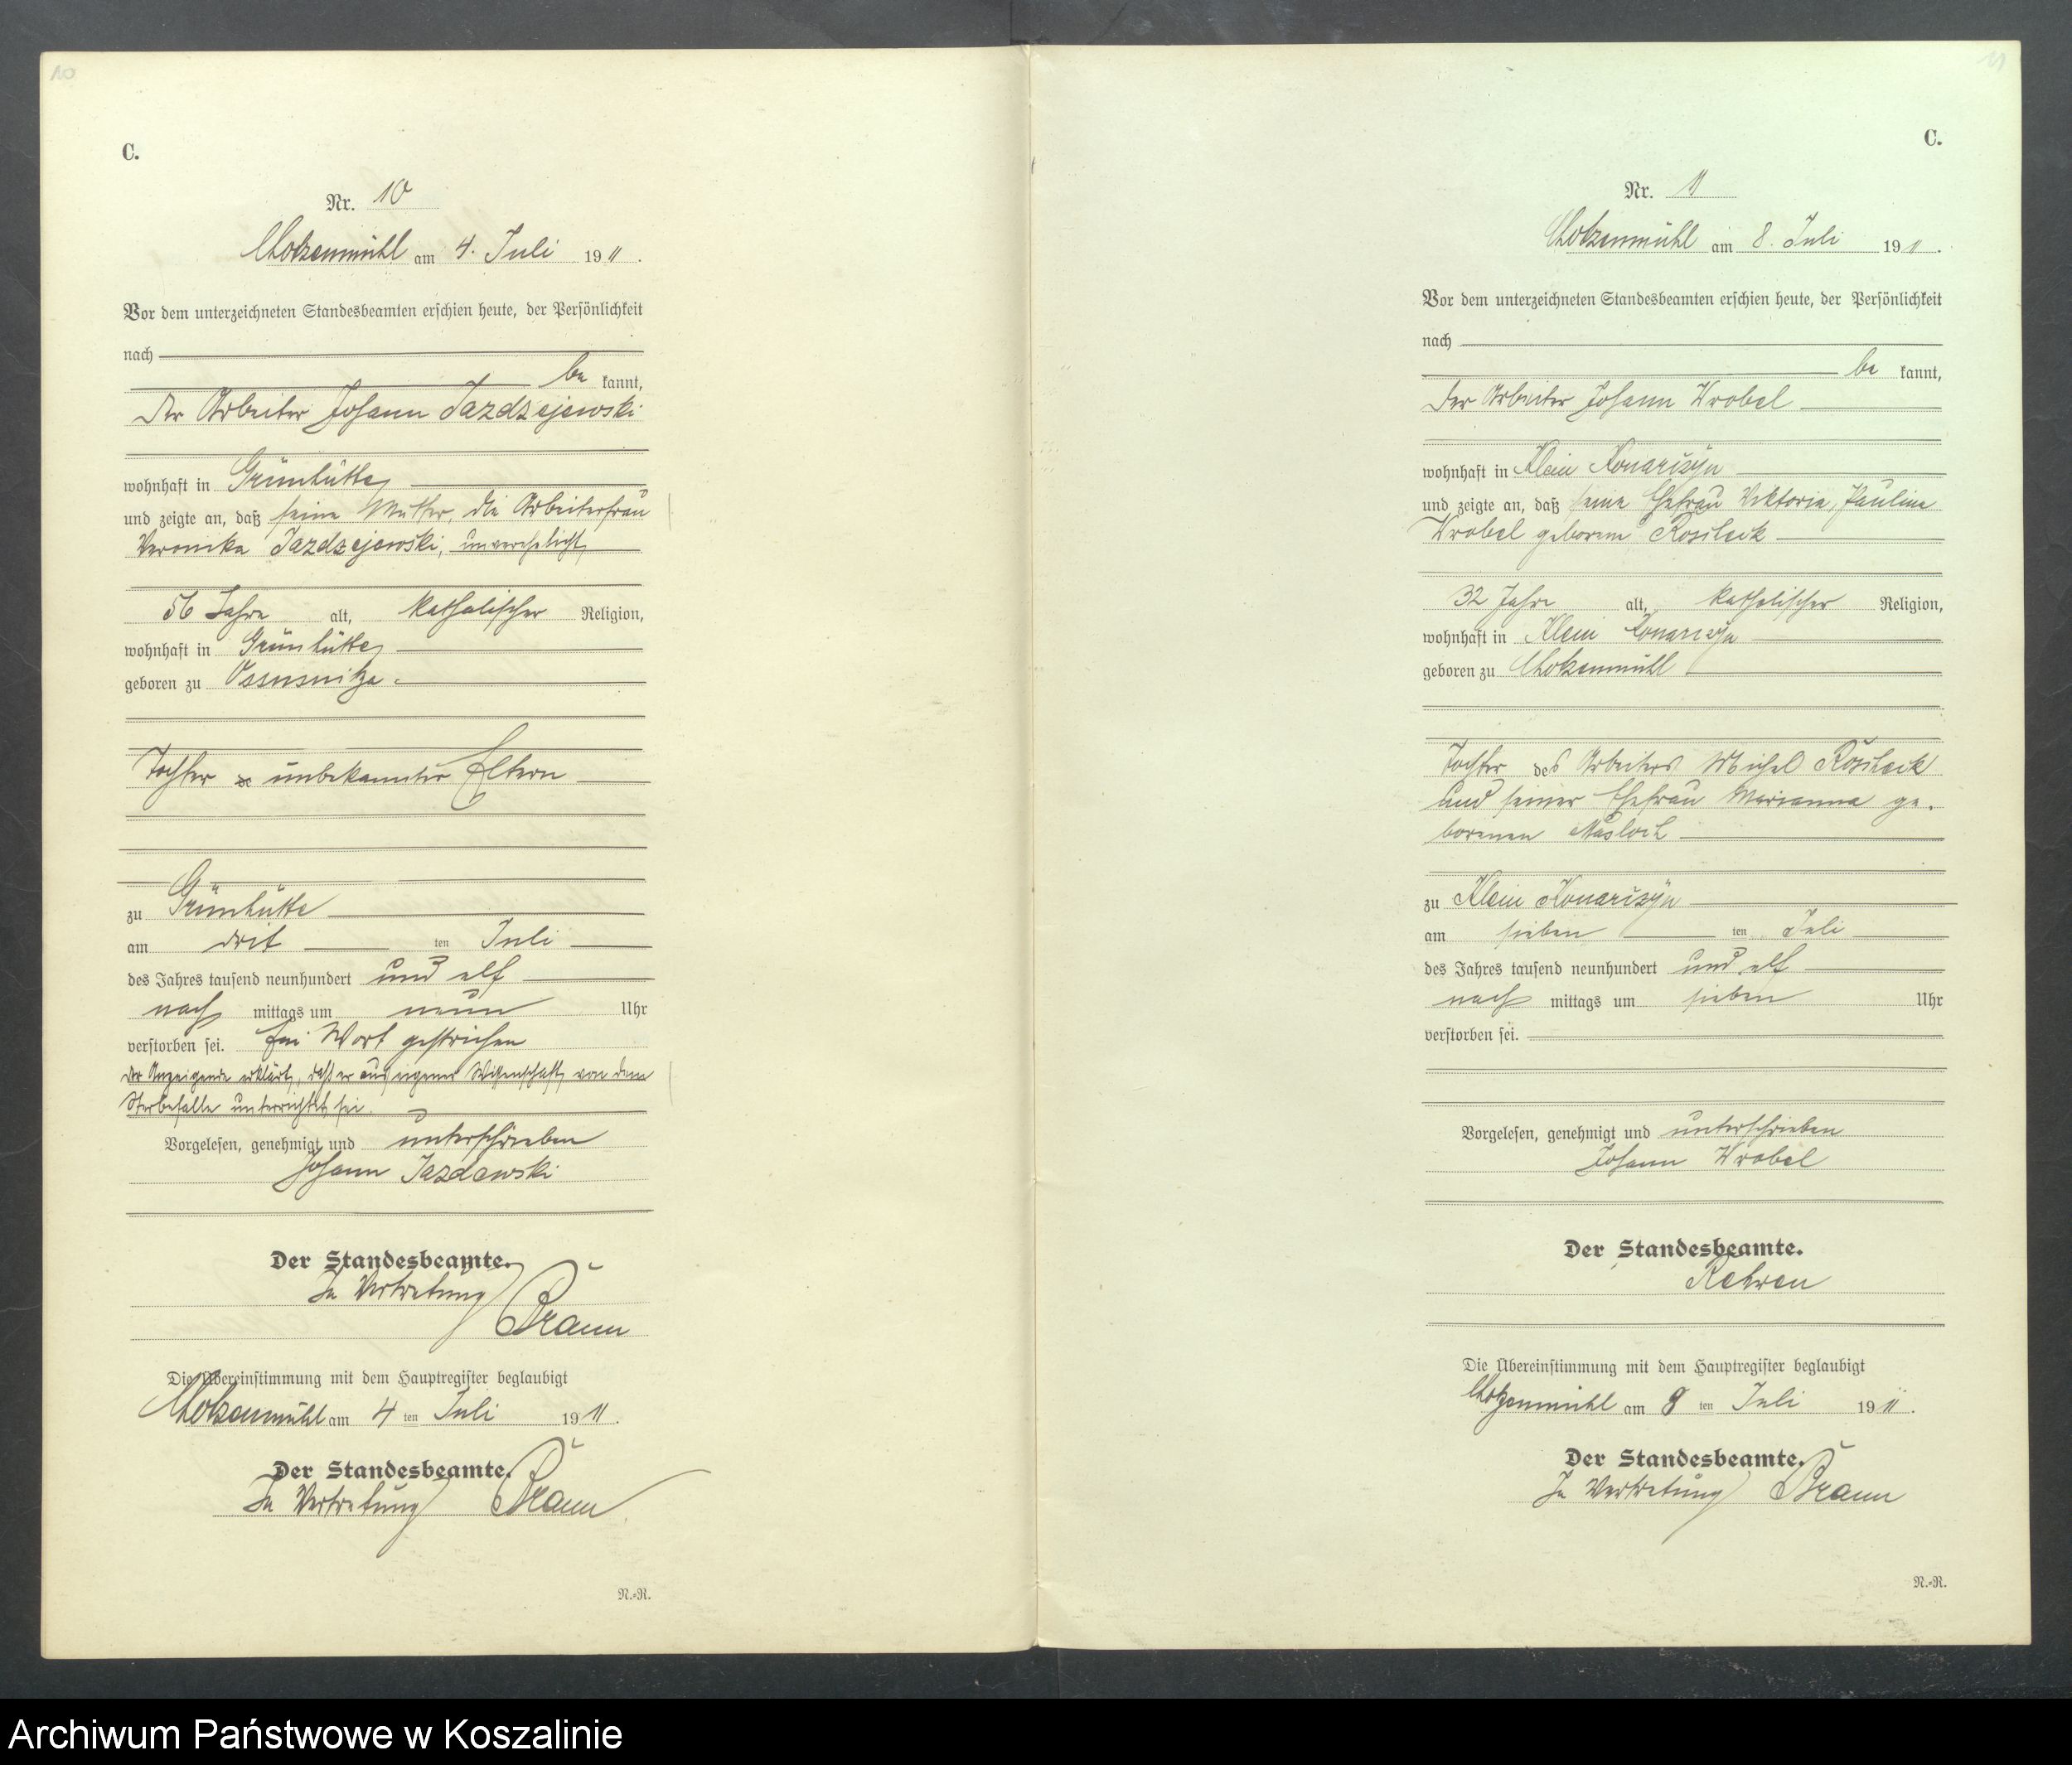 10
C.
Nr. 10
Chotzenmühl am 4. Juli 1911.
Vor dem unterzeichneten Standesbeamten erschien heute, der Persönlichkeit
nach
be kannt,
der Arbeiter Johann Jazdzejewski
wohnhaft in Grünhütte
und zeigte an, daß seine Mutter, die Arbeiterfrau
Veronika Jazdzejewski, unverehelicht,
56 Jahre alt, katholischer Religion,
wohnhaft in Grünhütte
geboren zu Ossusnitza
Tochter unbekannter Eltern
zu Grünhütte
am drit ten Juli
des Jahres tausend neunhundert und elf
nach mittags um neun Uhr
verstorben sei. Ein Wort gestrichen
Der Anzeigende erklärt, daß er aus eigener Wissenschaft von dem
Sterbefalle unterrichtet sei.
Vorgelesen, genehmigt und unterschrieben
Johann Jazdewski
Der Standesbeamte.
In Vertretung
Braun
Die Übereinstimmung mit dem Hauptregister beglaubigt
Chotzenmühl am 4 ten Juli 1911.
Der Standesbeamte.
In Vertretung Braun
N.-R.
11
C.
Nr. 11
Chotzenmühl am 8. Juli 1911.
Vor dem unterzeichneten Standesbeamten erschien heute, der Persönlichkeit
nach
be kannt,
der Arbeiter Johann Wrobel
wohnhaft in Klein Konarczyn
und zeigte an, daß seine Ehefrau Viktoria, Pauline
Wrobel geborene
32 Jahre alt, katholischer Religion,
wohnhaft in Klein Konarczyn
geboren zu Chotzenmühl
Tochter des Arbeiters Michel
und seiner Ehefrau Marianna ge-
borenen Masloch
zu Klein Konarczyn
am sieben ten Juli
des Jahres tausend neunhundert und elf
nach mittags um sieben Uhr
verstorben sei.
Vorgelesen, genehmigt und unterschrieben
Johann Wrobel
Der Standesbeamte.
Die Übereinstimmung mit dem Hauptregister beglaubigt
Chotzenmühl am 8 ten Juli 1911.
Der Standesbeamte.
In Vertretung Braun
N.-R.
Archiwum Państwowe w Koszalinie